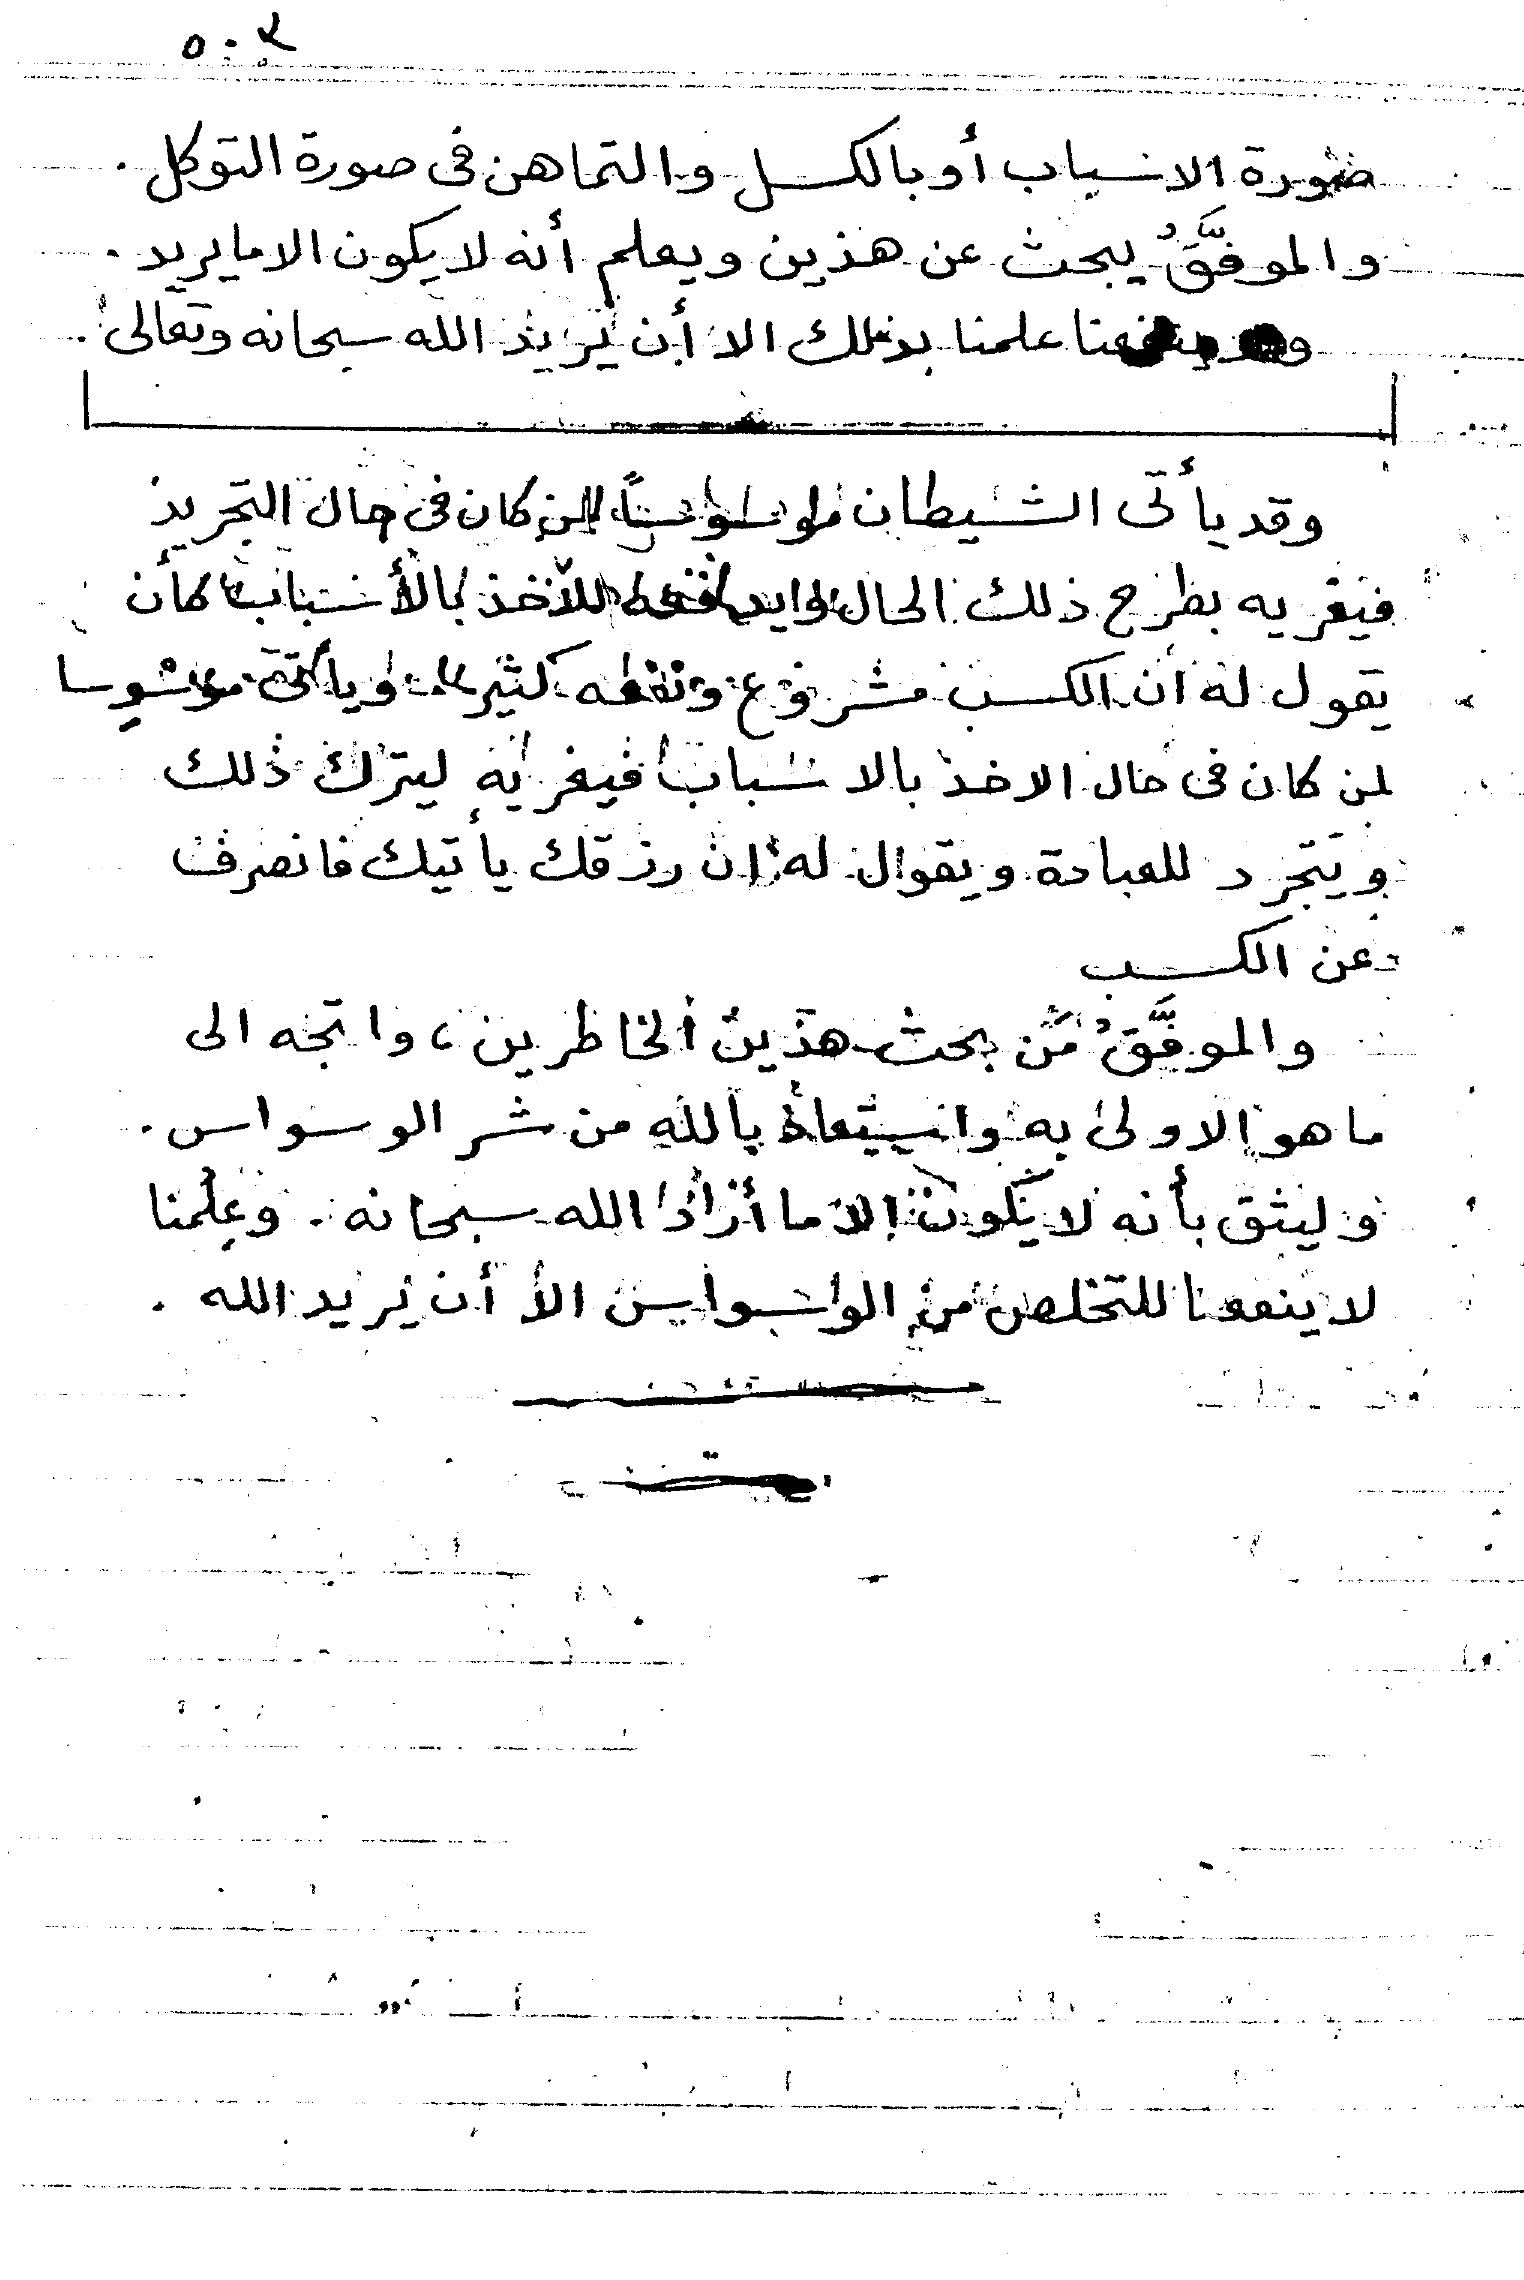 صورة الاسباب أو بالكسل والتماهن فى صورة التوكل .
والموفَّقُ يبحث عن هذين ويعلم أنه لا يكون الا ما يريد .
ينفعنا علمنا بذلك الا أن يُريد الله سبحانه وتعالى .
وقد يأتى الشيطان موسوساً لمن كان فى حال التجريد
فيغريه بطرح ذلك الحال للأخذ بالأسباب كأن
يقول له ان الكسب مشروع ونفعه كثير . ويأتى موسوسا
لمن كان فى حال الاخذ بالاسباب فيغريه ليترك ذلك
ويتجرد للعبادة ويقول له ان رزقك يأتيك فانصرف
عن الكسب
والموفَّقُ مَن بحث هذين الخاطرين ، واتجه الى
ما هو الاولى به واستعاذ بالله من شر الوسواس .
وليثق بأنه لا يكون الا ما أراد الله سبحانه . وعِلْمنا
لا ينفعنا للتخلص من الوسواس الا أن يُريد الله .